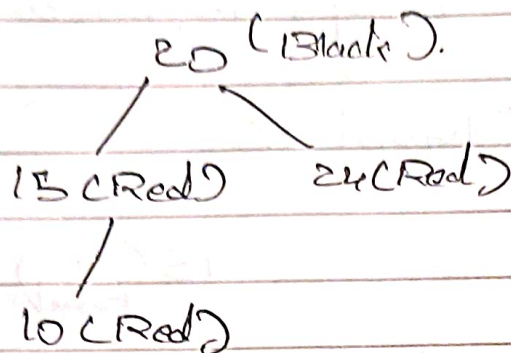 20 (Black).
15 (Red) 24 (Red)
10 (Red)